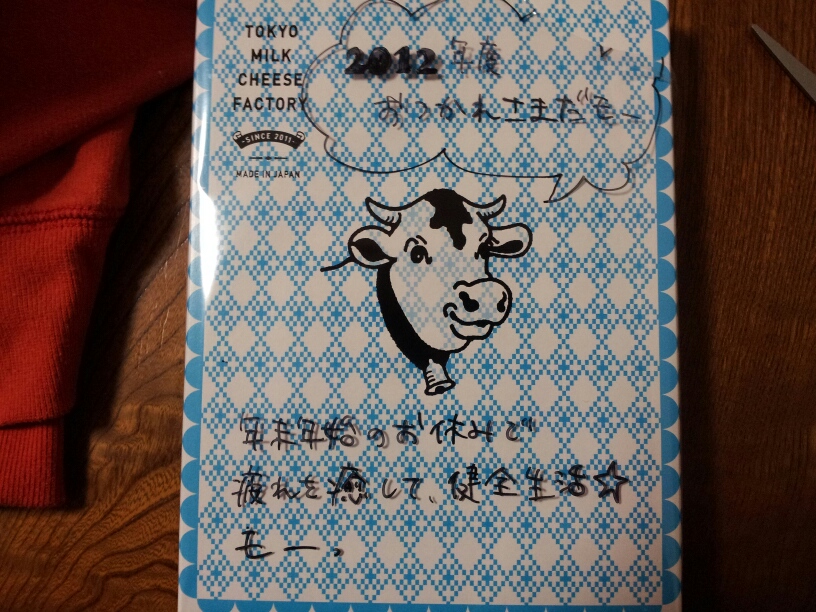 TOKYO
MILK
CHEESE
FACTORY
-SINCE 2011-
MADE IN JAPAN
2012年度
おつかれさまだモー
年末年始のお休みで
疲れを癒して、健全生活☆
モー。